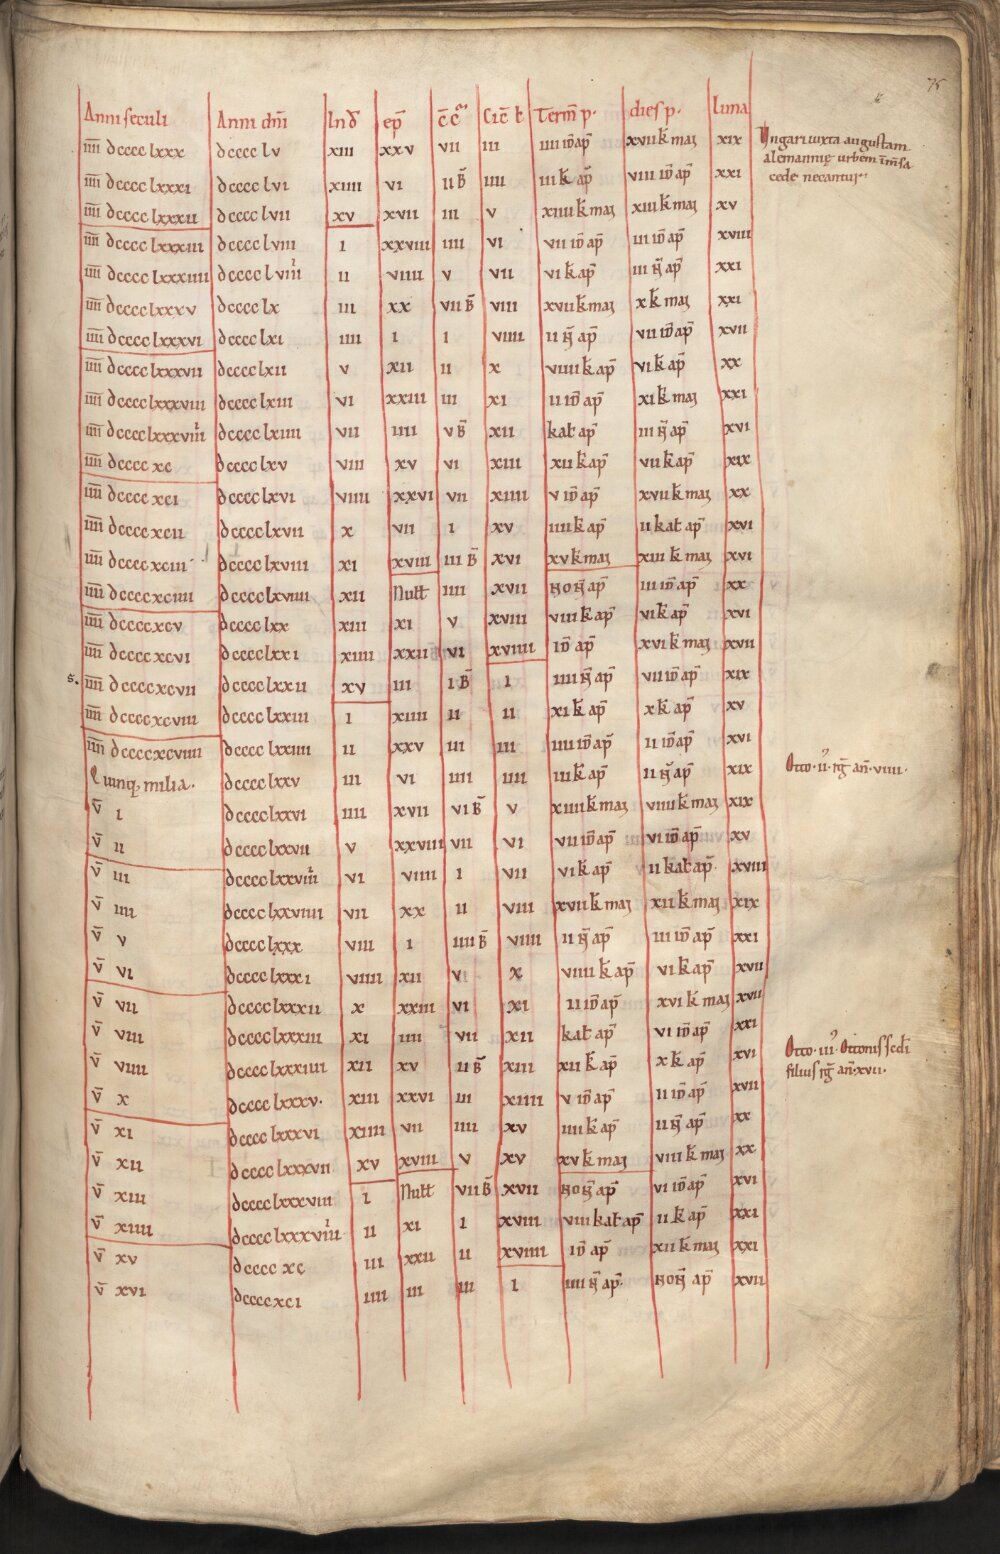 75
Anni seculi Anni dñi Ind ep̄ c̄c̄ Cic̄ ł Term̄ p. dies p. luna
īīīī dcccc lxxx dcccc lv xiii xxv vii iii iiii id̄ ap̄ xvii k̄ mai xix Ungari iuxta augustam
īīīī dcccc lxxxi dcccc lvi xiiii vi ii B̄ iiii iii k̄ ap̄ viii id̄ ap̄ xxi alemannię urbem īm̄sa
īīīī dcccc lxxxii dcccc lvii xv xvii iii v xiiii k̄ mai xiii k̄ mai xv cede necantur
īīīī dcccc lxxxiii dcccc lviii i xxviii iiii vi vii id̄ ap̄ iii id̄ ap̄ xviii
īīīī dcccc lxxxiiii dcccc lviiii ii viiii v vii vi k̄ ap̄ iii n̄ ap̄ xxi
īīīī dcccc lxxxv dcccc lx iii xx vii B̄ viii xvii k̄ mai x k̄ mai xxi
īīīī dcccc lxxxvi dcccc lxi iiii i i viiii ii n̄ ap̄ vii id̄ ap̄ xvii
īīīī dcccc lxxxvii dcccc lxii v xii ii x viiii k̄ ap̄ vi k̄ ap̄ xx
īīīī dcccc lxxxviii dcccc lxiii vi xxiii iii xi ii id̄ ap̄ xi k̄ mai xxi
īīīī dcccc lxxxviiii dcccc lxiiii vii iiii v B̄ xii kal ap̄ iii n̄ ap̄ xvi
īīīī dcccc xc dcccc lxv viii xv vi xiii xii k̄ ap̄ vii k̄ ap̄ xix
īīīī dcccc xci dcccc lxvi viiii xxvi vii xiiii v id̄ ap̄ xvii k̄ mai xx
īīīī dcccc xcii dcccc lxvii x vii i xv iiii k̄ ap̄ ii kal ap̄ xvi
īīīī dcccc xciii dcccc lxviii xi xviii iii B̄ xvi xv k̄ mai xiii k̄ mai xvi
īīīī dcccc xciiii dcccc lxviiii xii Null iiii xvii non̄ ap̄ iii id̄ ap̄ xx
īīīī dcccc xcv dcccc lxx xiii xi v xviii viii k̄ ap̄ vi k̄ ap̄ xvi
īīīī dcccc xcvi dcccc lxxi xiiii xxii vi xviiii id̄ ap̄ xvi k̄ mai xvii
s. īīīī dcccc xcvii dcccc lxxii xv iii i B̄ i iiii n̄ ap̄ vii id̄ ap̄ xix
īīīī dcccc xcviii dcccc lxxiii i xiiii ii ii xi k̄ ap̄ x k̄ ap̄ xv
īīīī dcccc xcviiii dcccc lxxiiii ii xxv iii iii iiii id̄ ap̄ ii id̄ ap̄ xvi
Quinq; milia. dcccc lxxv iii vi iiii iiii iii k̄ ap̄ ii n̄ ap̄ xix Otto·ii· rḡ añ·viiii·
v̄ i dcccc lxxvi iiii xvii vi B̄ v xiiii k̄ mai viiii k̄ mai xix
v̄ ii dcccc lxxvii v xxviii vii vi vii id̄ ap̄ vi id̄ ap̄ xv
v̄ iii dcccc lxxviii vi viiii i vii vi k̄ ap̄ ii kal ap̄ xviii
v̄ iiii dcccc lxxviiii vii xx ii viii xvii k̄ mai xii k̄ mai xix
v̄ v dcccc lxxx viii i iiii B̄ viiii ii n̄ ap̄ iii id̄ ap̄ xxi
v̄ vi dcccc lxxxi viiii xii v x viiii k̄ ap̄ vi k̄ ap̄ xvii
v̄ vii dcccc lxxxii x xxiii vi xi ii id̄ ap̄ xvi k̄ mai xvii
v̄ viii dcccc lxxxiii xi iiii vii xii kal ap̄ vi id̄ ap̄ xxi Otto·iii· Ottonis scđi
v̄ viiii dcccc lxxxiiii xii xv ii B̄ xiii xii k̄ ap̄ x k̄ ap̄ xvi filius rḡ añ·xvii·
v̄ x dcccc lxxxv· xiii xxvi iii xiiii v id̄ ap̄ ii id̄ ap̄ xvii
v̄ xi dcccc lxxxvi xiiii vii iiii xv iiii k̄ ap̄ ii n̄ ap̄ xx
v̄ xii dcccc lxxxvii xv xviii v xv xv k̄ mai viii k̄ mai xx
v̄ xiii dcccc lxxxviii i Null vii B̄ xvii non̄ ap̄ vi id̄ ap̄ xvi
v̄ xiiii dcccc lxxxviiii ii xi i xviii viii kal ap̄ ii k̄ ap̄ xxi
v̄ xv dcccc xc iii xxii ii xviiii id̄ ap̄ xii k̄ mai xxi
v̄ xvi dcccc xci iiii iii iii i iiii n̄ ap̄ non̄ ap̄ xvii